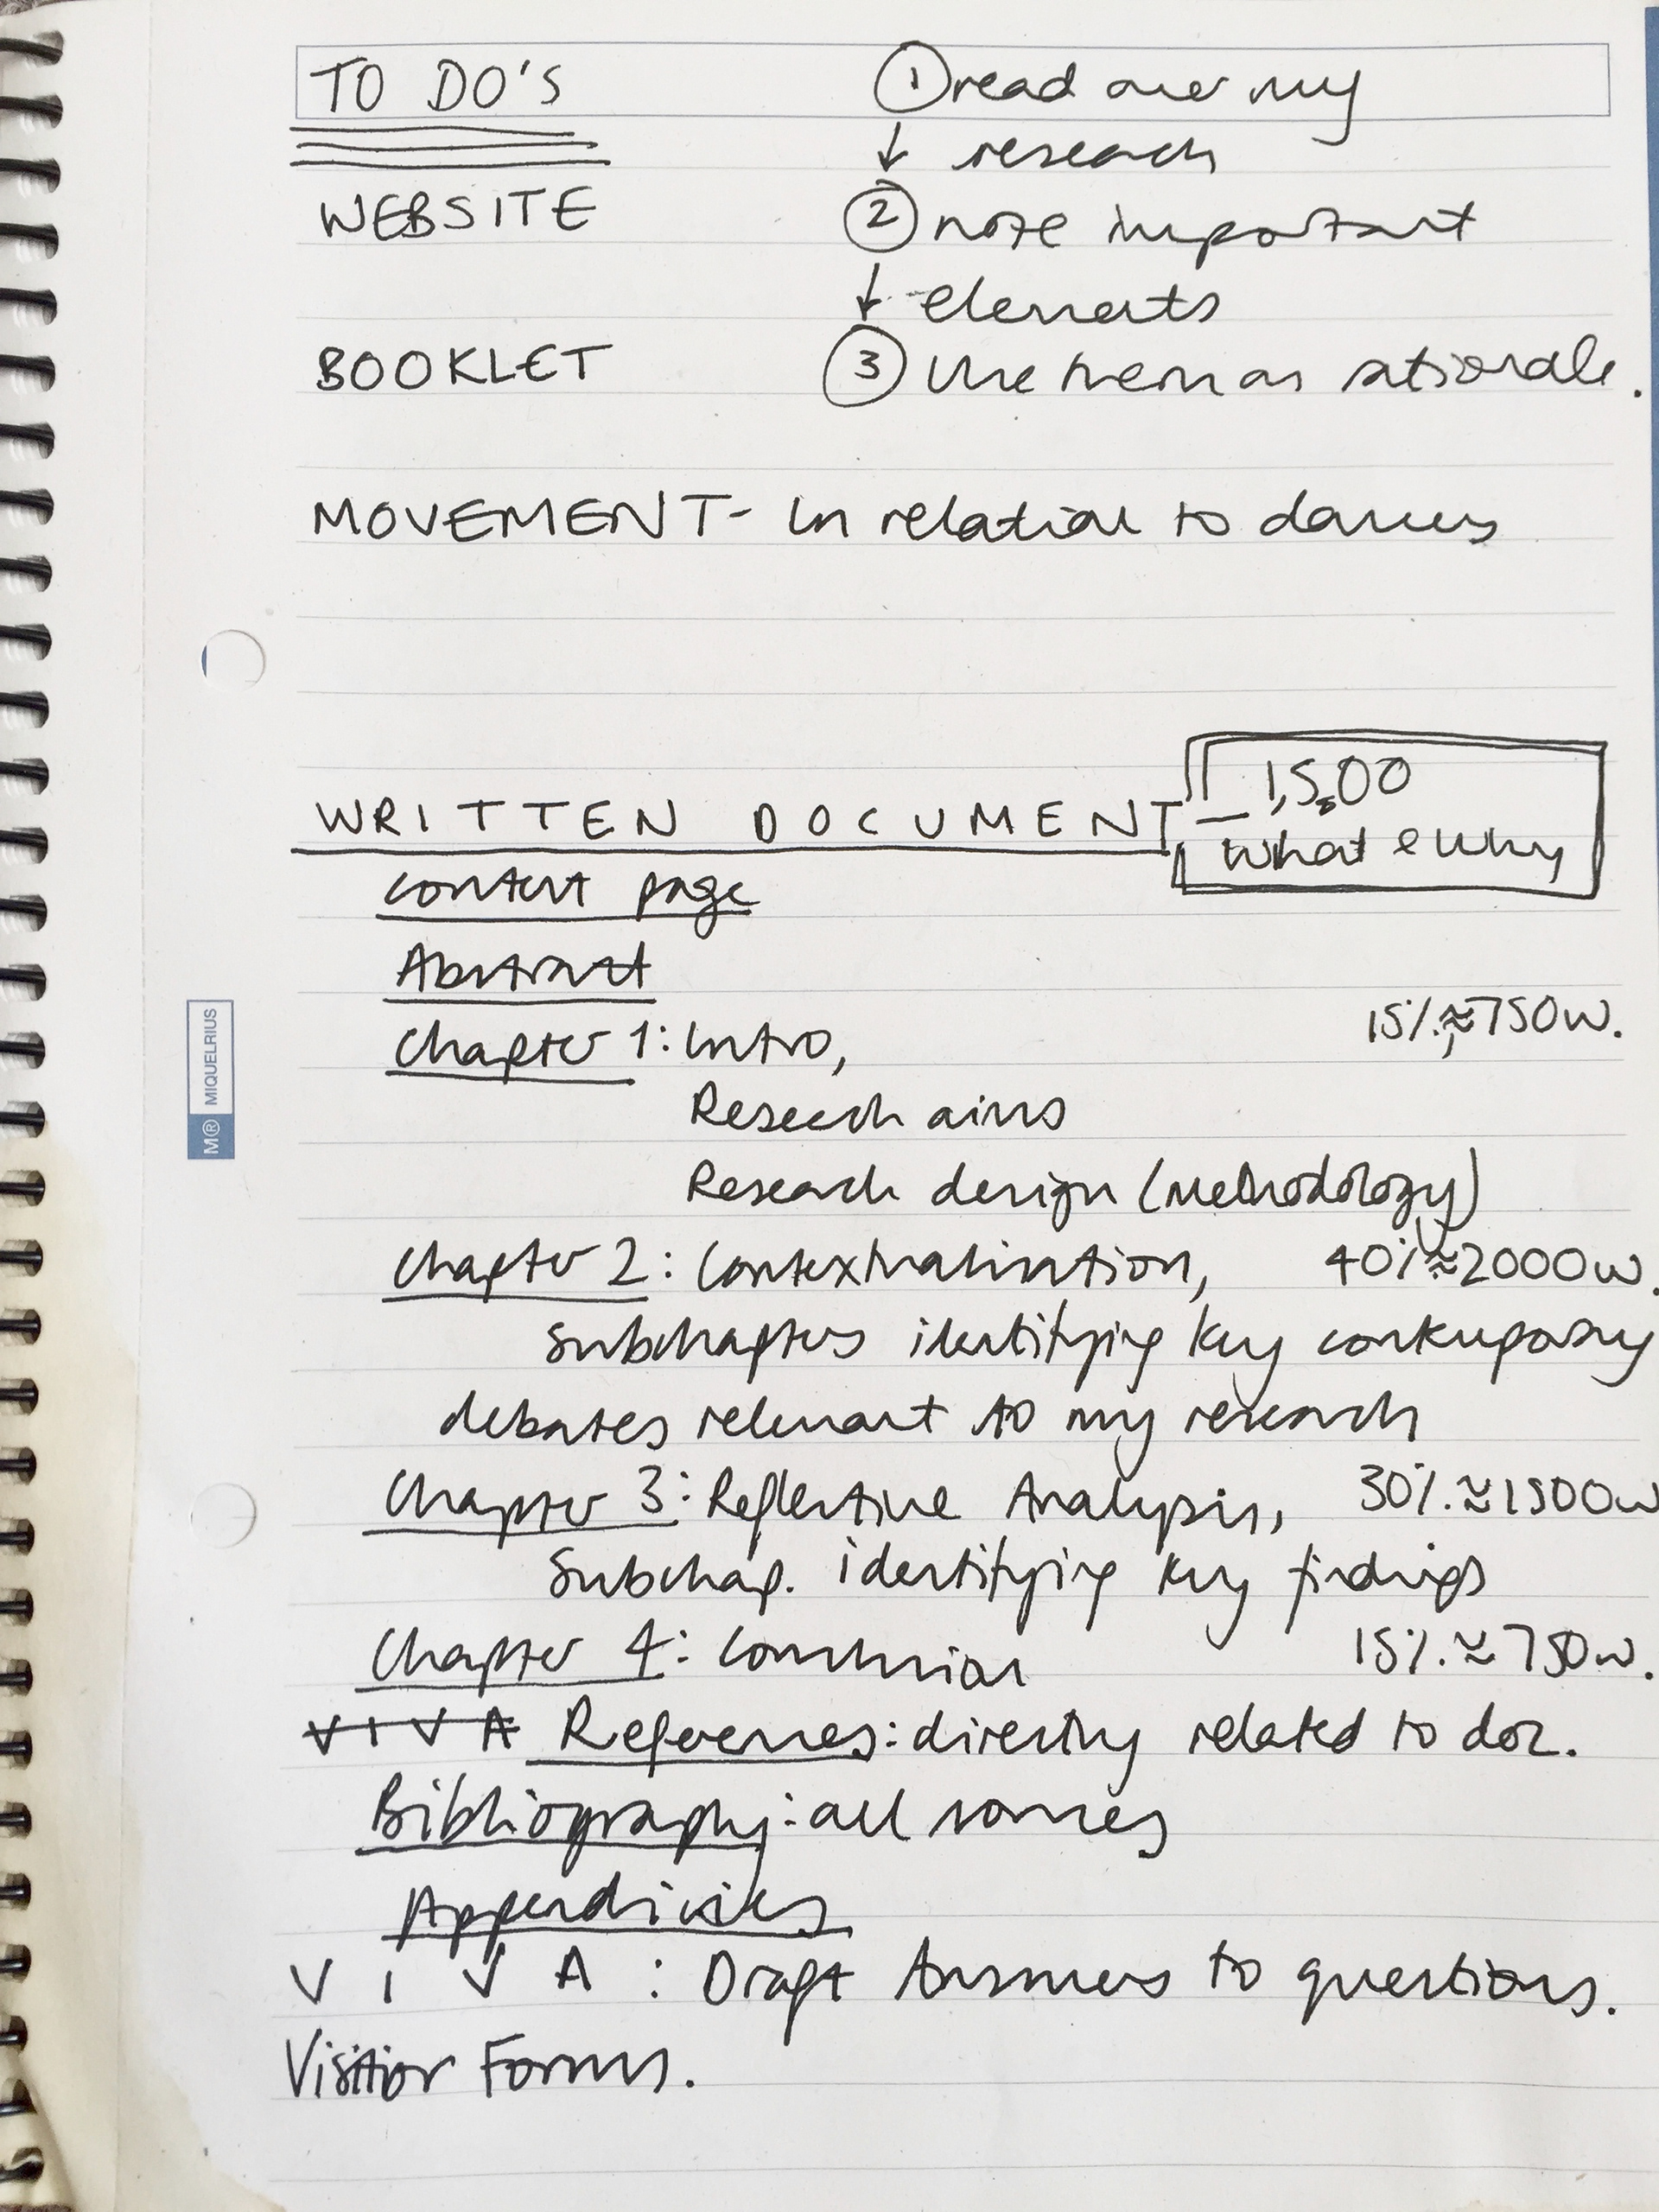 TO DO'S
① read over my
↓ research
WEBSITE
② note important
↓ elements
BOOKLET
③ Use them as rationale.
MOVEMENT - in relation to dancers
WRITTEN DOCUMENT
– 1,500
what & why
content page
Abstract
Chapter 1: Intro, 15% ≈ 750w.
Research aims
Research design (methodology)
Chapter 2: Contextualisation, 40% ≈ 2000w.
Subchapters identifying key contemporary
debates relevant to my research
Chapter 3: Reflective Analysis, 30% ≈ 1500w
Subchap. identifying key findings
Chapter 4: Conclusion 15% ≈ 750w.
VIVA References: directly related to doc.
Bibliography: all sources
Appendicies
V I V A : Draft Answers to questions.
Visitior Forms.
M® MIQUELRIUS